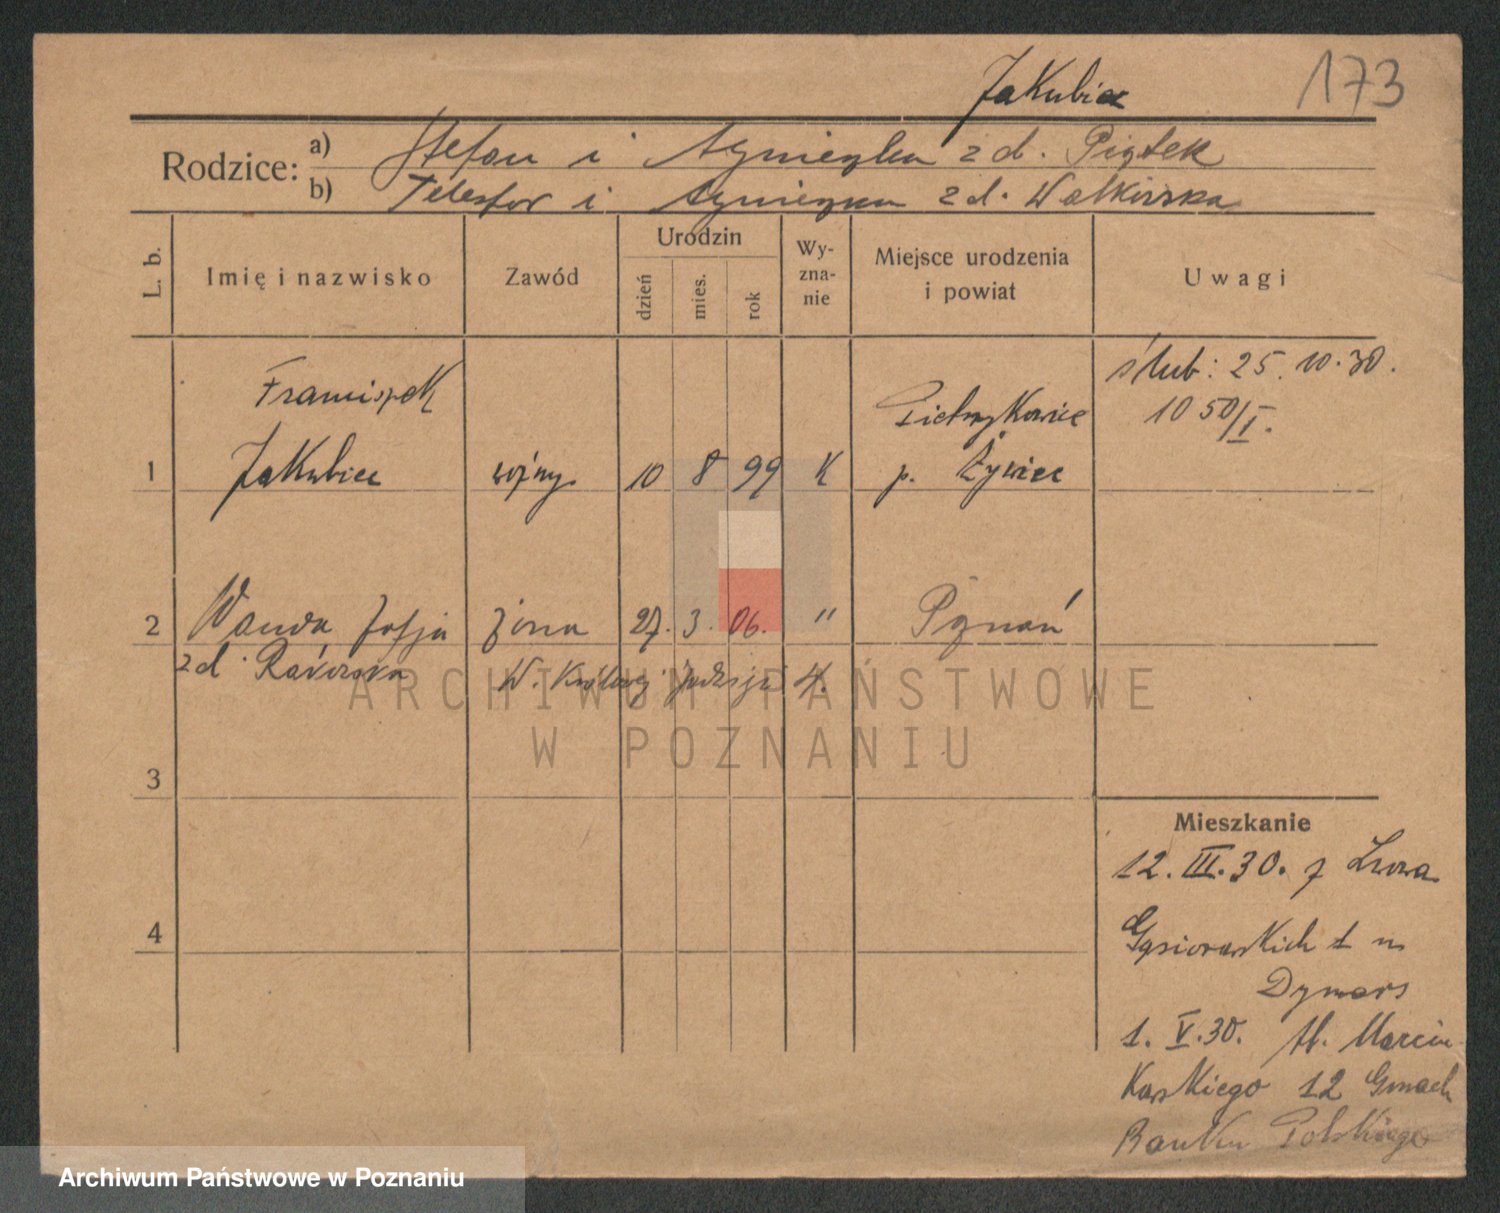 Jakubiec
173
Rodzice:
a) Stefan i Agnieszka z d. Piątek
b) Telesfor i Agnieszka z d. Walkowska
L. b.
Imię i nazwisko
Zawód
Urodzin
dzień
mies.
rok
Wy-
zna-
nie
Miejsce urodzenia
i powiat
Uwagi
1
Franciszek
Jakubiec
woźny
10 8 99 K
Pietrzykowice
p. Żywiec
ślub: 25. 10. 30.
1050/I.
2
Wanda Zofja
zd.
żona
27. 3. 06. "
Poznań
W. Królowej Jadwigi 4.
3
4
Mieszkanie
12. III. 30. z Lwowa
Gąsiorowskich 1 m
1. V. 30. Al. Marcin
kowskiego 12 Gmach
Banku Polskiego
ARCHIWUM PAŃSTWOWE
W POZNANIU
Archiwum Państwowe w Poznaniu